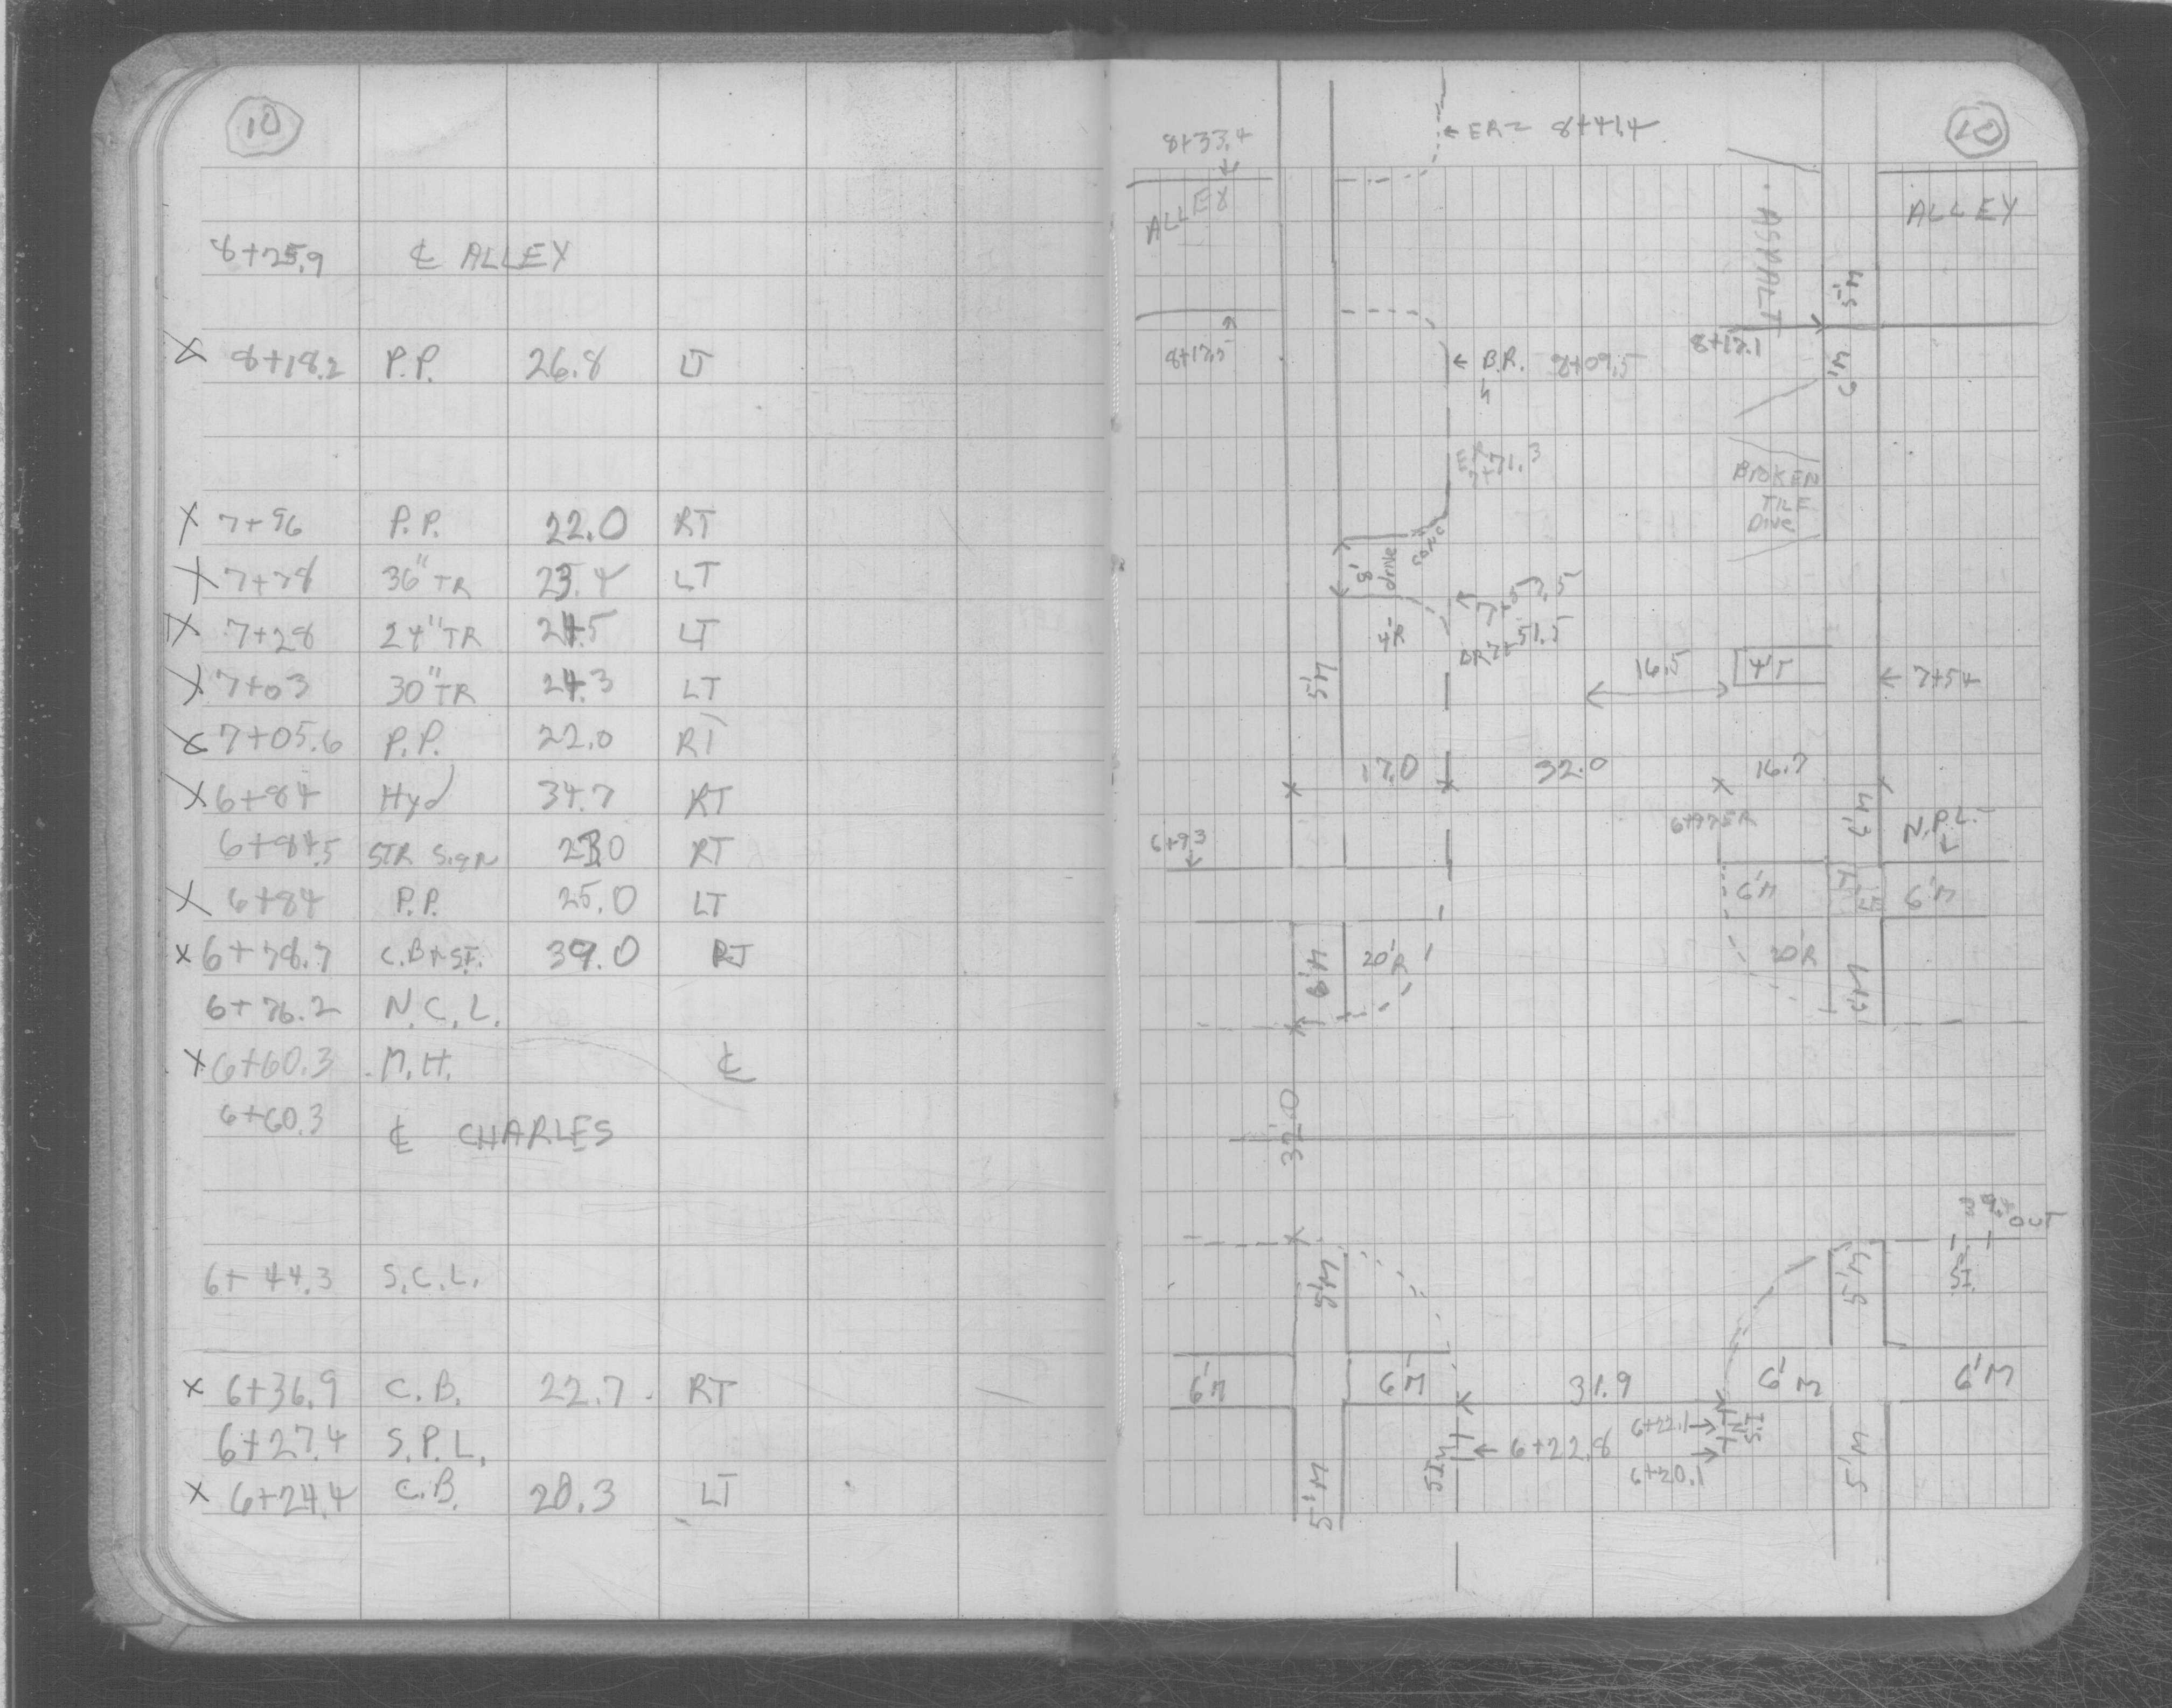 10
8+25.9 ℄ ALLEY
X 8+18.2 P.P. 26.8 LT
X 7+96 P.P. 22.0 RT
X 7+78 36" TR 23.4 LT
X 7+28 24" TR 24.5 LT
X 7+03 30" TR 24.3 LT
X 7+05.6 P.P. 22.0 RT
X 6+84 Hyd 34.7 RT
6+84.5 STR Sign 23.0 RT
X 6+84 P.P. 25.0 LT
X 6+78.7 C.B+SI. 39.0 RT
6+76.2 N.C.L.
X 6+60.3 M.H. ℄
6+60.3 ℄ CHARLES
6+44.3 S.C.L.
X 6+36.9 C.B. 22.7 RT
6+27.4 S.P.L.
X 6+24.4 C.B. 20.3 LT
10
8+33.4
ER= 8+41.4
ALLEY
ASPHALT
ALLEY
5'M
8+17.5
B.R. 8+09.5
8+17.1
6'M
ER
7+71.3
BROKEN
TILE
Drive
conc
8'
drive
7+57.5
4'R
BR 7+51.5
5'M
16.5
4'T
7+54
17.0
32.0
16.7
6+93
6+97 ER
N.P.L.
6'M
6'M
6'M
20'R
20'R
6'M
32.0
OUT
5'M
5'M
SI.
6'M
6'M
31.9
6'M
6'M
6+22.1
SI
6+22.8
6+20.1
5'M
5'M